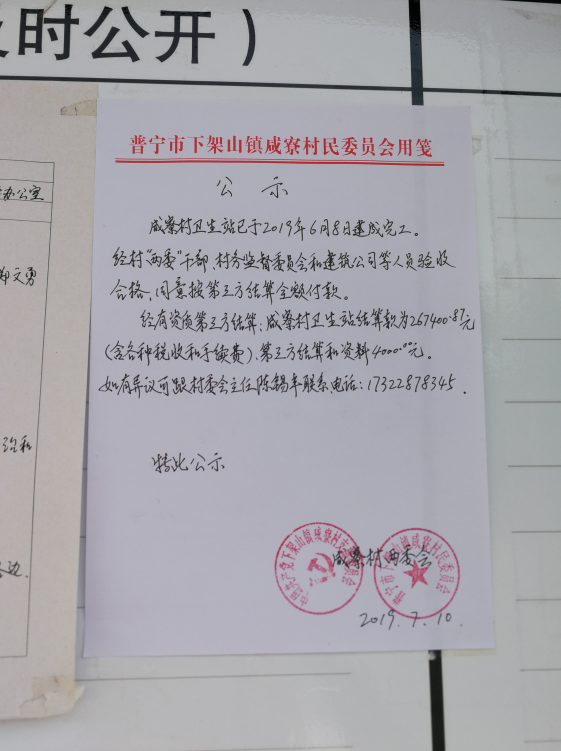 时公开）
办公室
文勇
普宁市下架山镇咸寮村民委员会用笺
公 示
咸寮村卫生站已于2019年6月8日建成完工。
经村"两委"干部、村务监督委员会和建筑公司等人员验收
合格，同意按第三方结算全额付款。
经有资质第三方结算：咸寮村卫生站结算款为267400.87元
(含各种税收和手续费)、第三方结算和资料4000.00元。
如有异议可跟村委会主任陈锡丰联系电话：17322878345．
特此公示
咸寮村两委会
中国共产党下架山镇咸寮村支部委员会
普宁市下架山镇咸寮村民委员会
2019.7.10.